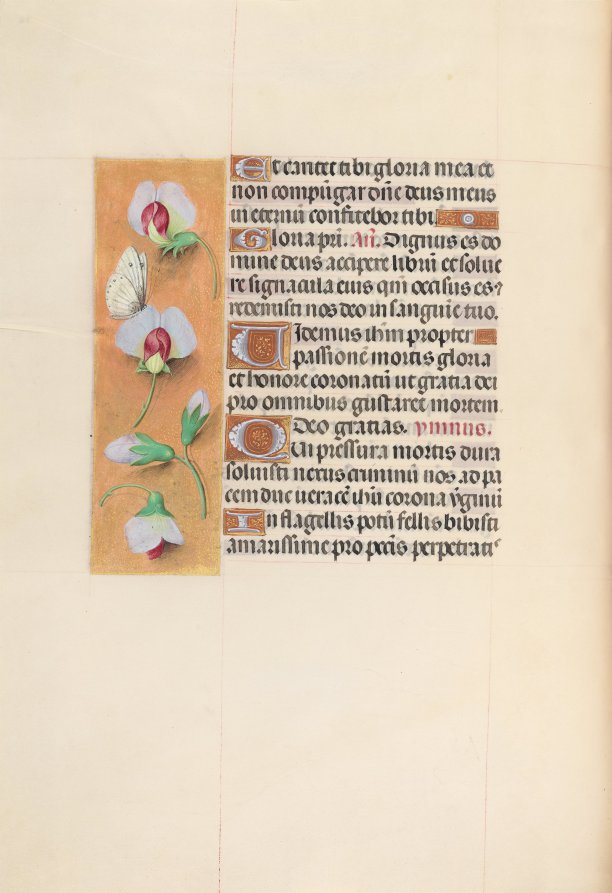 Et cantet tibi gloria mea et
non compūgar dn̄e deus meus
in eternū confitebor tibi.
Gloria pr̄i. An̄. Dignus es do
mine deus accipere librū et solue
re signacula eius qui occisus es ⁊
redemisti nos deo in sanguīe tuo.
Uidemus ihm̄ propter
passionē mortis gloria
et honore coronatū ut gratia dei
pro omnibus gustaret mortem
Deo gratias. ymnus.
Qui pressura mortis dura
soluisti nexus criminū nos ad pa
cem duc uera cē ihū corona v̄ginū
In flagellis potū fellis bibisti
amarissime pro pecīs perpetratis